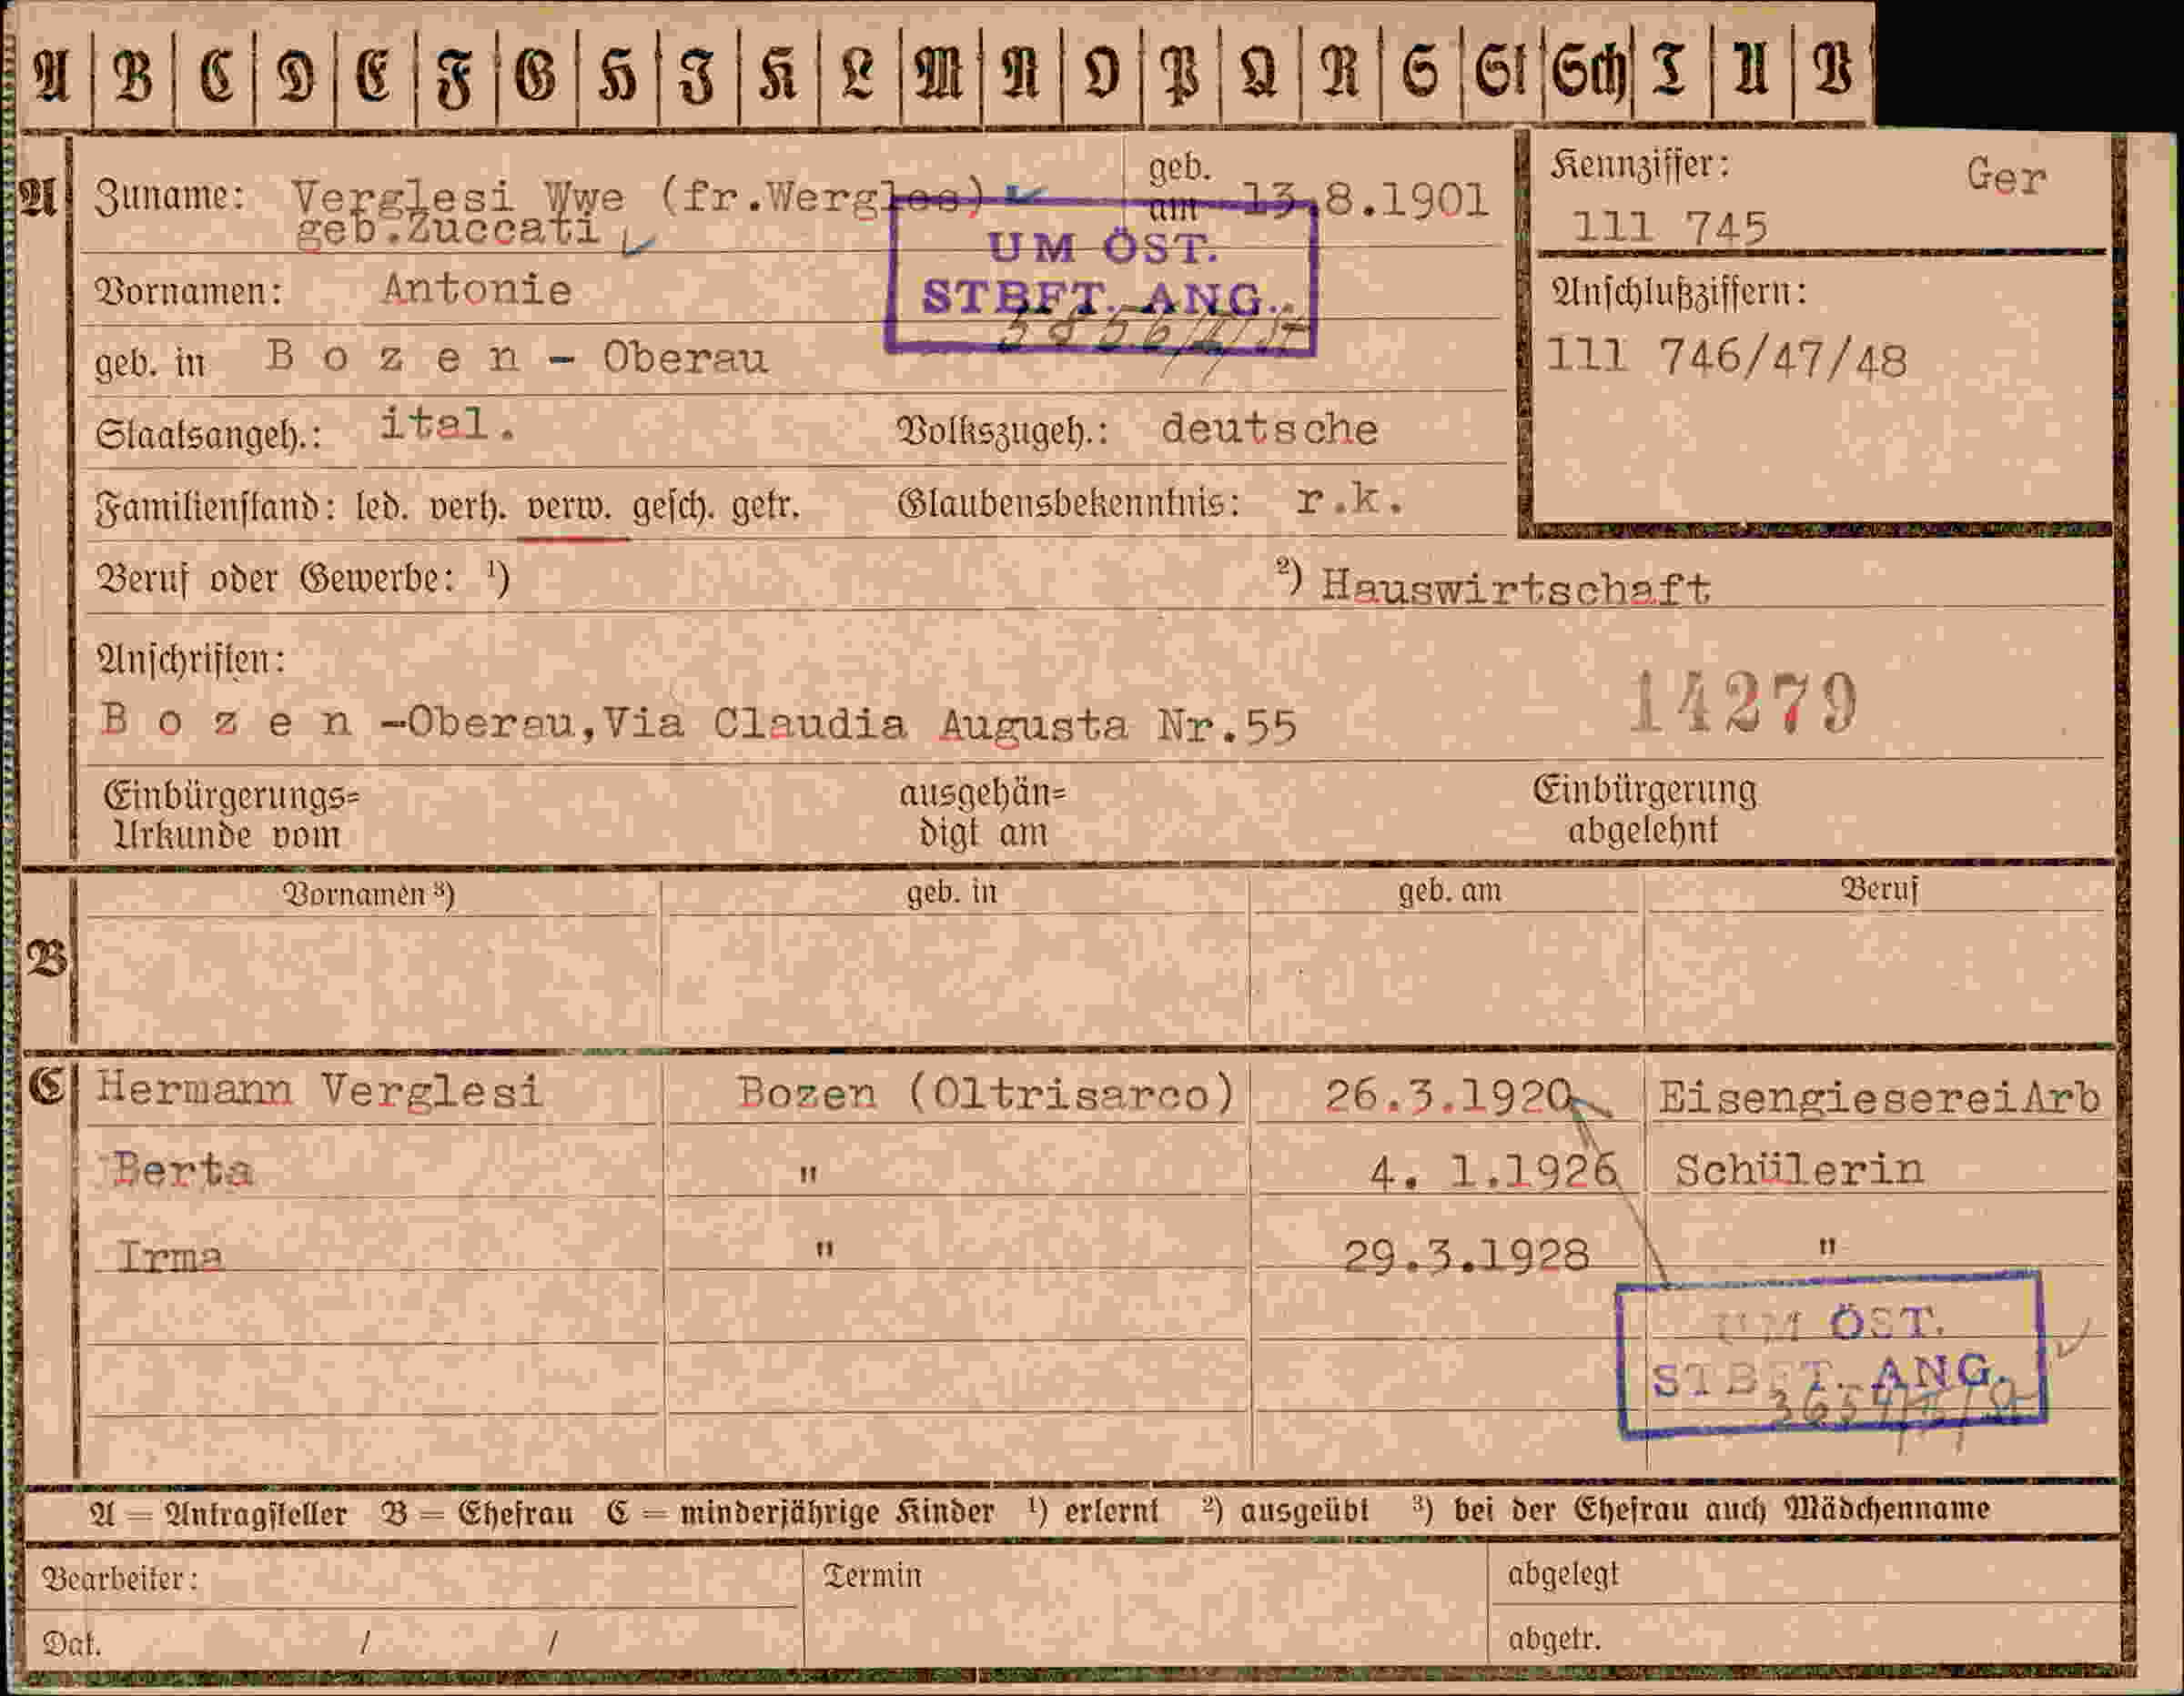 A B C D E F G H J K L M N O P Q R S St Sch T U V
A Zuname: Verglesi Wwe (fr.Wergles) geb. am 13.8.1901
geb.Zuccati
Kennziffer: Ger
111 745
UM ÖST.
STBFT. ANG.
Vornamen: Antonie
Anschlußziffern:
111 746/47/48
geb. in B o z e n - Oberau
Staatsangeh.: ital. Volkszugeh.: deutsche
Familienstand: led. verh. verw. gesch. getr. Glaubensbekenntnis: r.k.
Beruf oder Gewerbe: ¹) ²) Hauswirtschaft
Anschriften:
14279
B o z e n -Oberau,Via Claudia Augusta Nr.55
Einbürgerungs= ausgehän= Einbürgerung
Urkunde vom digt am abgelehnt
Vornamen ³) geb. in geb. am Beruf
B
C Hermann Verglesi Bozen (Oltrisarco) 26.3.1920 EisengiesereiArb
Berta " 4. 1.1926 Schülerin
Irma " 29.3.1928 "
UM ÖST.
STBFT. ANG.
A = Antragsteller B = Ehefrau C = minderjährige Kinder ¹) erlernt ²) ausgeübt ³) bei der Ehefrau auch Mädchenname
Bearbeiter: Termin abgelegt
Dat. / / abgetr.